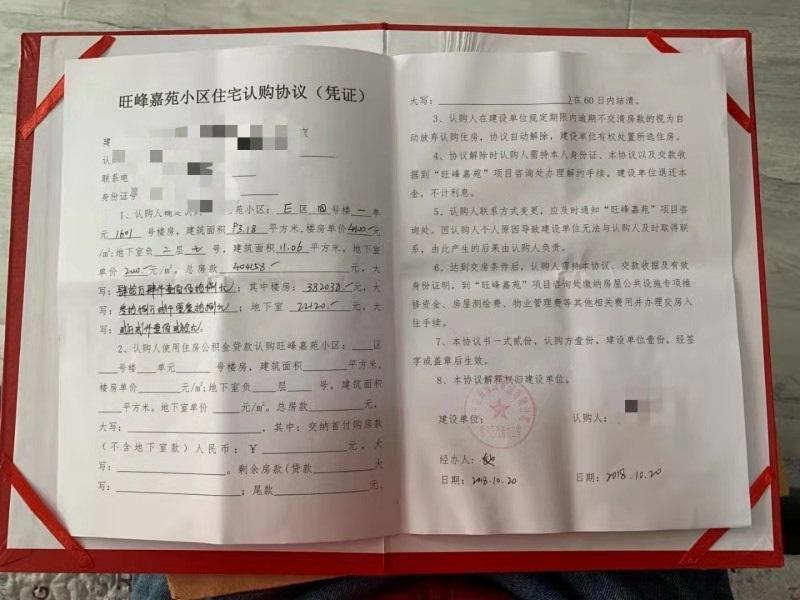 旺峰嘉苑小区住宅认购协议（凭证）
建
认
联系电
身份证号
1、认购人确定认 苑小区：E区 四 号楼 一 单
元 1601 号楼房，建筑面积 93.18 平方米，楼房单价 4100 元
/m²；地下室负 二 层 七 号，建筑面积 11.06 平方米，地下室
单价 2000 元/m²。总房款 404158 元，大
写： ；其中楼房：382038 元，大
写： ；地下室 22120 元，大
写：
2、认购人使用住房公积金贷款认购旺峰嘉苑小区：____区
____号楼____单元____号楼房，建筑面积____平方米，
楼房单价____元/m²；地下室负____层____号，建筑面积
____平方米，地下室单价____元/m²。总房款____元，
大写：____，其中：交纳首付购房款
（不含地下室款）人民币：¥____元，大
写：____。剩余房款(贷款____大
写：____；尾款____元，
大写：____)在 60 日内结清。
3、认购人在建设单位规定期限内逾期不交清房款的视为自
动放弃认购住房，协议自动解除，建设单位有权处置所选住房。
4、协议解除时认购人需持本人身份证、本协议以及交款收
据到“旺峰嘉苑”项目咨询处办理解约手续。建设单位退还本
金，不计利息。
5、认购人联系方式变更，应及时通知“旺峰嘉苑”项目咨
询处。因认购人个人原因导致建设单位无法与认购人及时取得联
系，由此产生的后果由认购人负责。
6、达到交房条件后，认购人需持本协议、交款收据及有效
身份证明，到“旺峰嘉苑”项目咨询处缴纳房屋公共设施专项维
修资金、房屋测绘费、物业管理费等其他相关费用并办理交房入
住手续。
7、本协议书一式贰份，认购方壹份，建设单位壹份，经签
字或盖章后生效。
8、本协议解释权归建设单位。
建设单位： 认购人：
经办人：
日期：2018.10.20 日期：2018.10.20